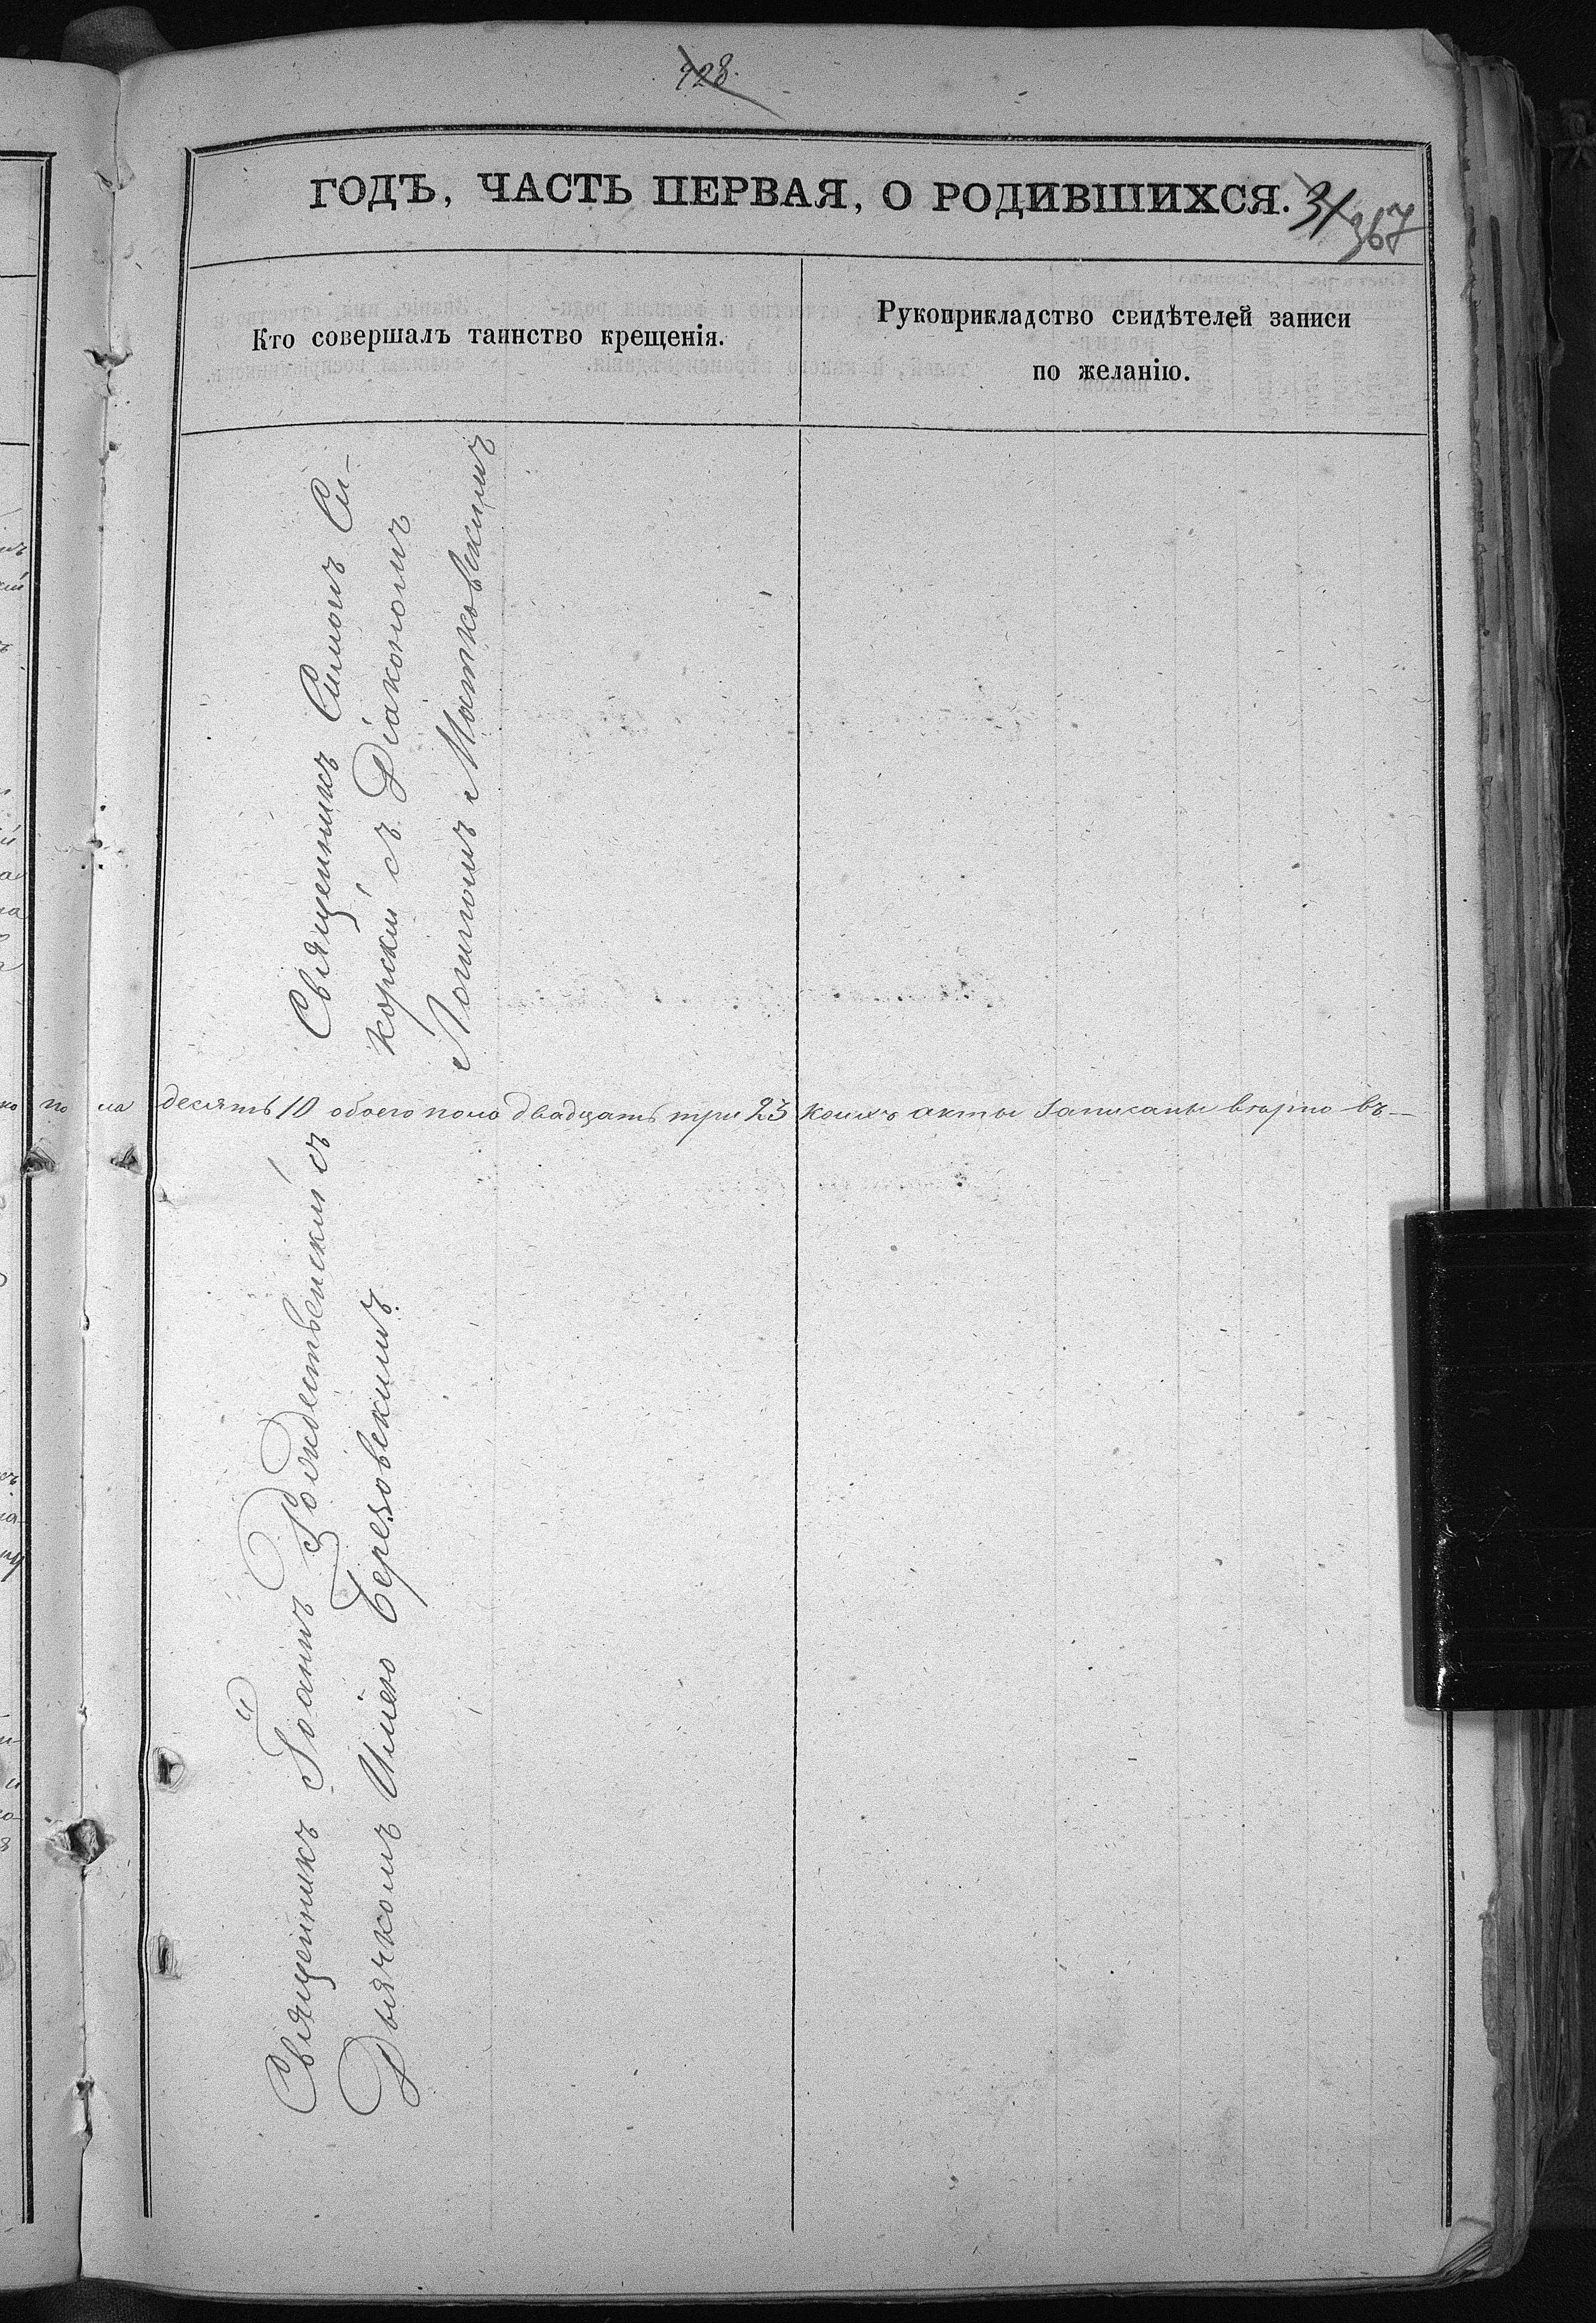 928.
ГОДЪ, ЧАСТЬ ПЕРВАЯ, О РОДИВШИХСЯ.
31
367
Кто совершалъ таинство крещенія.
Рукоприкладство свидѣтелей записи
по желанію.
Священникъ Симонъ Си-
корскій съ Діакономъ
Логиномъ Мотковскимъ
десять 10 обоего пола двадцать три 23 коихъ акты записаны вѣрно въ
Священникъ Іоаннъ Рождественскій съ
Дьячкомъ Иліею Березовскимъ